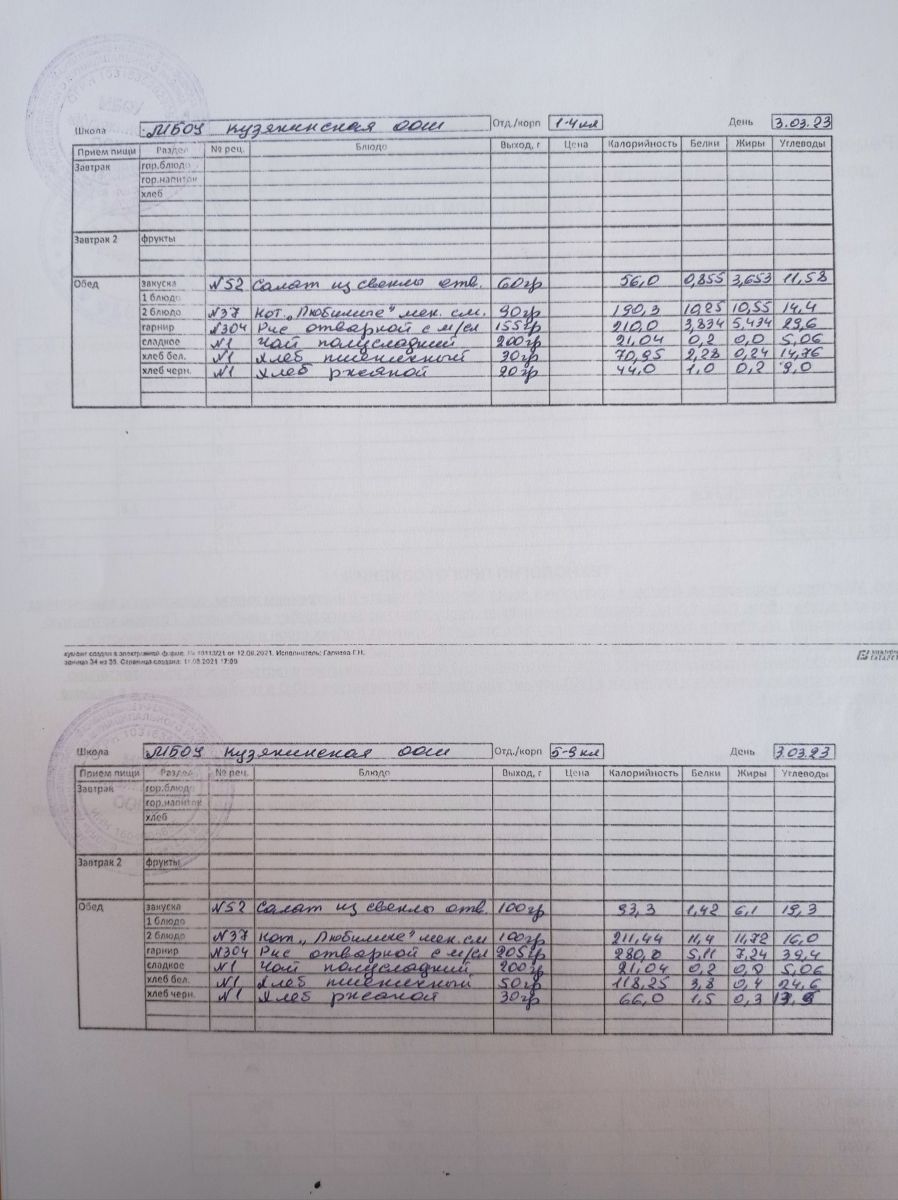 Школа МБОУ Кузякинская ООШ Отд./корп 1-4 кл День 3.03.23
Прием пищи Раздел № рец. Блюдо Выход, г Цена Калорийность Белки Жиры Углеводы
Завтрак гор.блюдо
гор.напиток
хлеб
Завтрак 2 фрукты
Обед закуска №52 Салат из свеклы отв. 60гр 56,0 0,855 3,653 11,58
1 блюдо
2 блюдо №37 Кот. „Любимые" мек. см. 90гр 190,3 10,25 10,55 14,4
гарнир №304 Рис отварной с м/сл 155гр 210,0 3,834 5,434 29,6
сладкое №1 Чай полусладкий 200гр 21,04 0,2 0,0 5,06
хлеб бел. №1 Хлеб пшеничный 30гр 70,95 2,28 0,24 14,76
хлеб черн. №1 Хлеб ржаной 20гр 44,0 1,0 0,2 9,0
ТЕХНОЛОГИЯ ПРИГОТОВЛЕНИЯ
кумент создан в электронной форме. № 10113/21 от 12.08.2021. Исполнитель: Галиева Г.Н.
раница 34 из 39. Страница создана: 11.08.2021 17:09
Школа МБОУ Кузякинская ООШ Отд./корп 5-9 кл День 3.03.23
Прием пищи Раздел № рец. Блюдо Выход, г Цена Калорийность Белки Жиры Углеводы
Завтрак гор.блюдо
гор.напиток
хлеб
Завтрак 2 фрукты
Обед закуска №52 Салат из свеклы отв. 100гр 93,3 1,42 6,1 19,3
1 блюдо
2 блюдо №37 Кот. „Любимые" мек. см 100гр 211,44 11,4 11,72 16,0
гарнир №304 Рис отварной с м/сл 205гр 280,0 5,11 7,24 39,4
сладкое №1 Чай полусладкий 200гр 21,04 0,2 0,0 5,06
хлеб бел. №1 Хлеб пшеничный 50гр 118,25 3,8 0,4 24,6
хлеб черн. №1 Хлеб ржаной 30гр 66,0 1,5 0,3